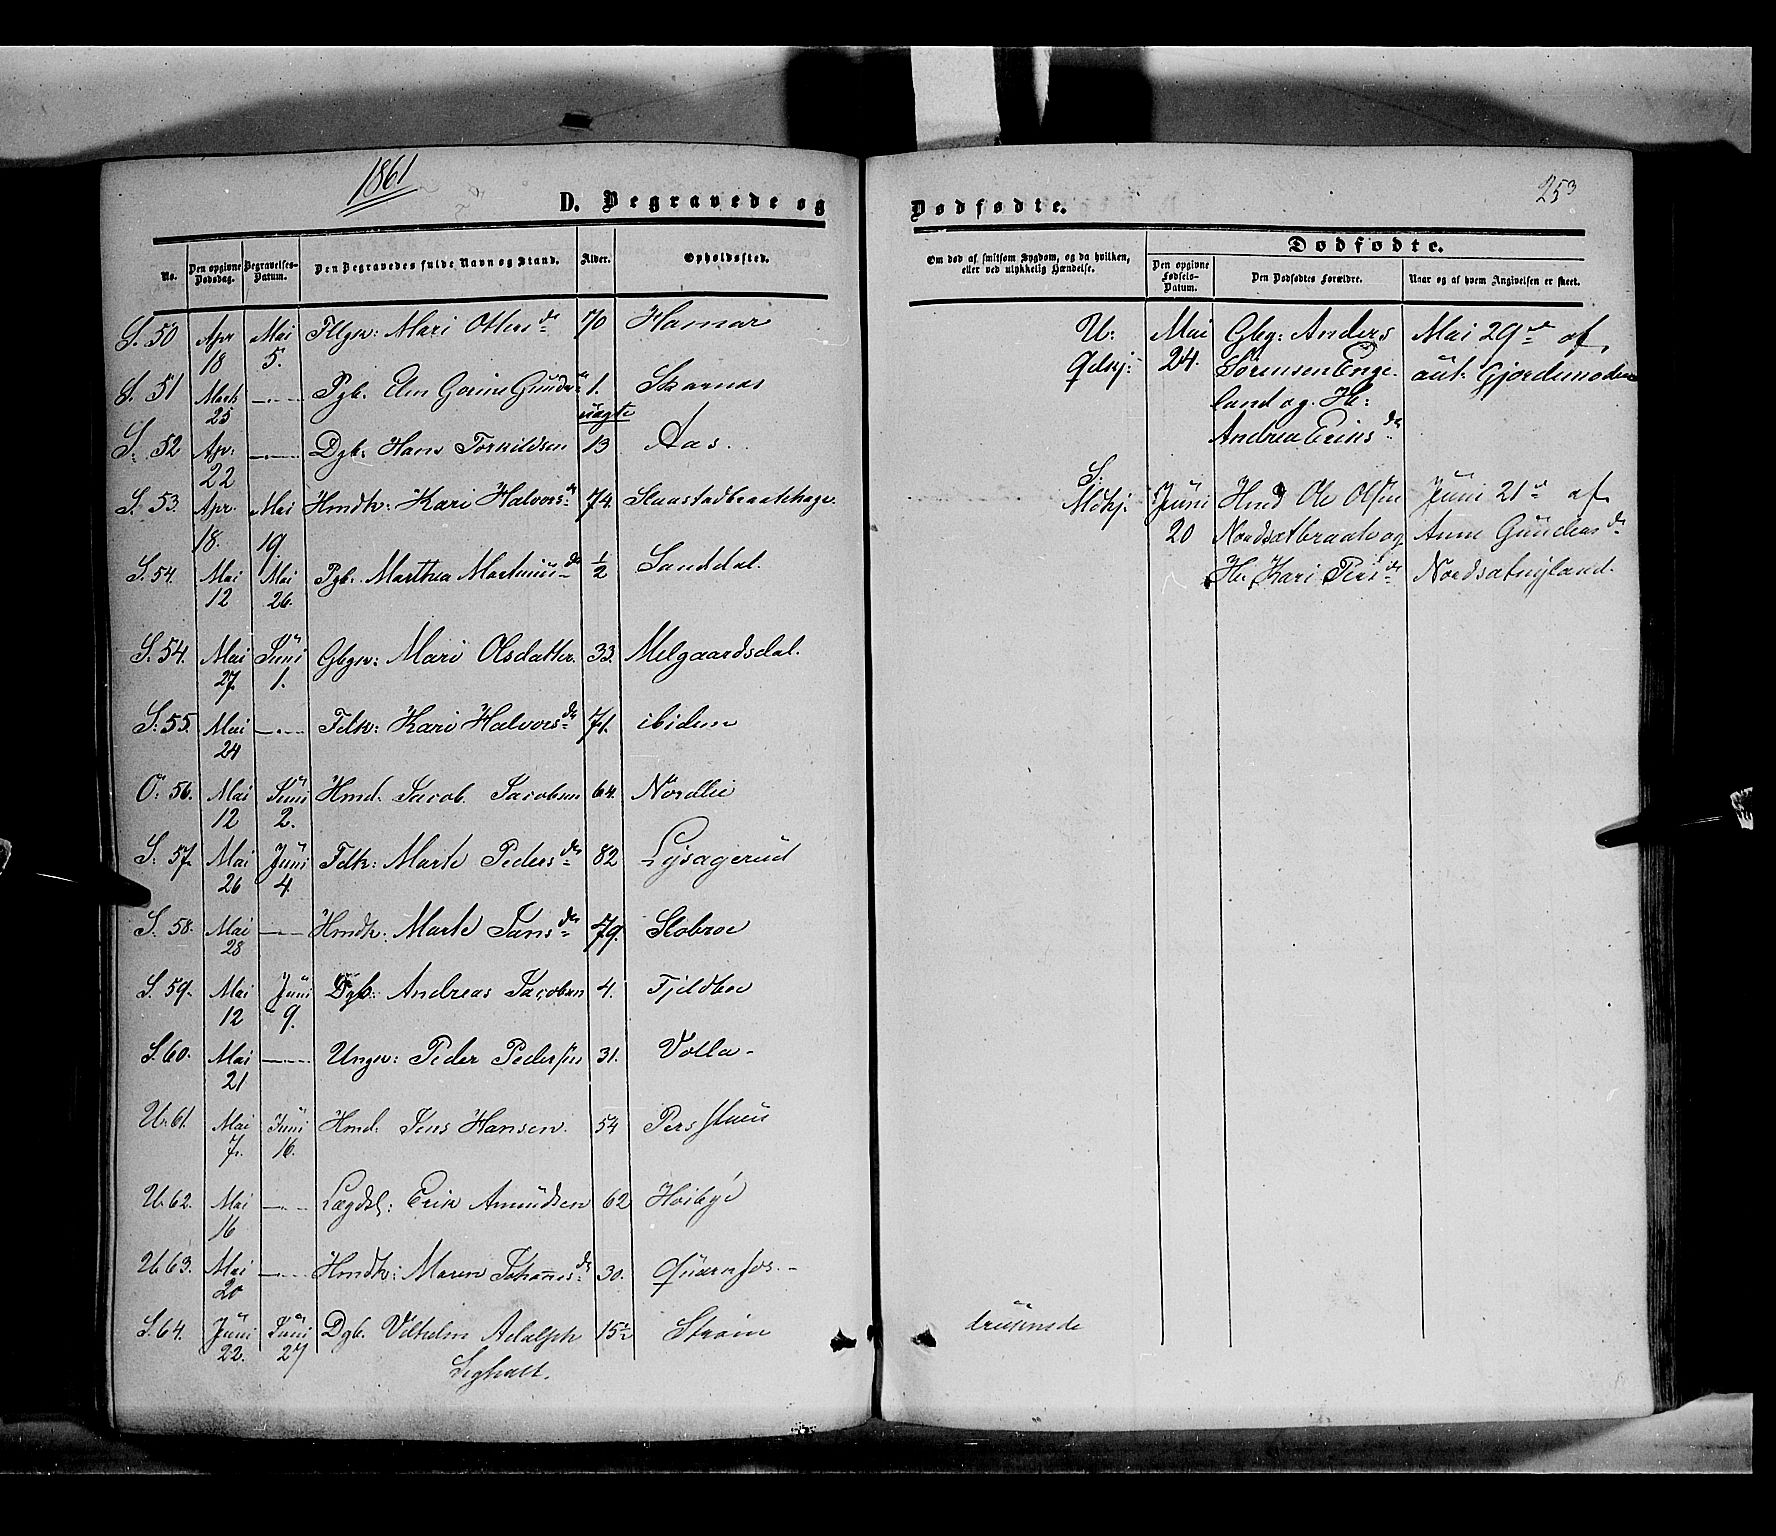 1861
D. Begravede og
No.
Den opgivne Dødsdag.
Begravelses-Datum.
Den Begravedes fulde Navn og Stand.
Alder.
Opholdssted.
S. 50 Apr 18 Mai 5. Mari Ottersdr 70 Hamar
S. 51 Mart 25 — Pgb. 1. uægte Skarnæs
S. 52 Apr. 22 — Dgb. Hans Torkildsen 13 Aas.
S. 53. Apr. 18. Mai 19. Hmdk: Kari Halvorsdr 74.
S. 54. Mai 12 Mai 26. Pgb. Marthea Martinusdr ½ Sanddal.
S. 54. Mai 27. Juni 1. Gbgn: Mari Olsdatter. 33. Melgaardsdal.
S. 55. Mai 24 — Fdk: Kari Halvorsdr 71. ibidem
O: 56. Mai 12 Juni 2. Hmd. Jacob Jacobsen 64. Nordlie
S. 57. Mai 26 Juni 4. Fdk: Marte Pedersdr 82 Lysagerud
S. 58. Mai 28 — Hmdk: Marte Jansdr 79. Slobroe
S. 59. Mai 12 Juni 9. Dgb: Andreas Jacobsen 4. Fjeldboe
S. 60. Mai 21 — Ungk: Peder Pedersen 31. Volla
U. 61. Mai 7. Juni 16. Hmd. Jens Hansen. 54 Persstuen
U. 62. Mai 16 — Lægdsl: Erik Amundsen 62 Høibye
U. 63. Mai 20 — Hmdk: Maren Johannesdr 30. Quærnfos.
S. 64. Juni 22. Juni 27 Dgb. Vilhelm Adolph 15 Strøm
253
Dødfødte.
Om død af smitsom Sygdom, og da hvilken,
eller ved ulykkelig Hændelse.
Dødfødte.
Den opgivne Fødsels-Datum.
Den Dødfødtes Forældre.
Naar og af hvem Angivelsen er skeet.
U: Mai Gbg: Anders Mai 29de af
24. Sørensen Enge- aut. Gjordemoder
land og H:
Andrea Eriksdr
S.
Mdkj. Juni Hmd Ole Olsen Juni 21de af
20 Nordsætbraate og Anne Gundersdr
H. Kari Persdr Nordsætnyland.
druknede